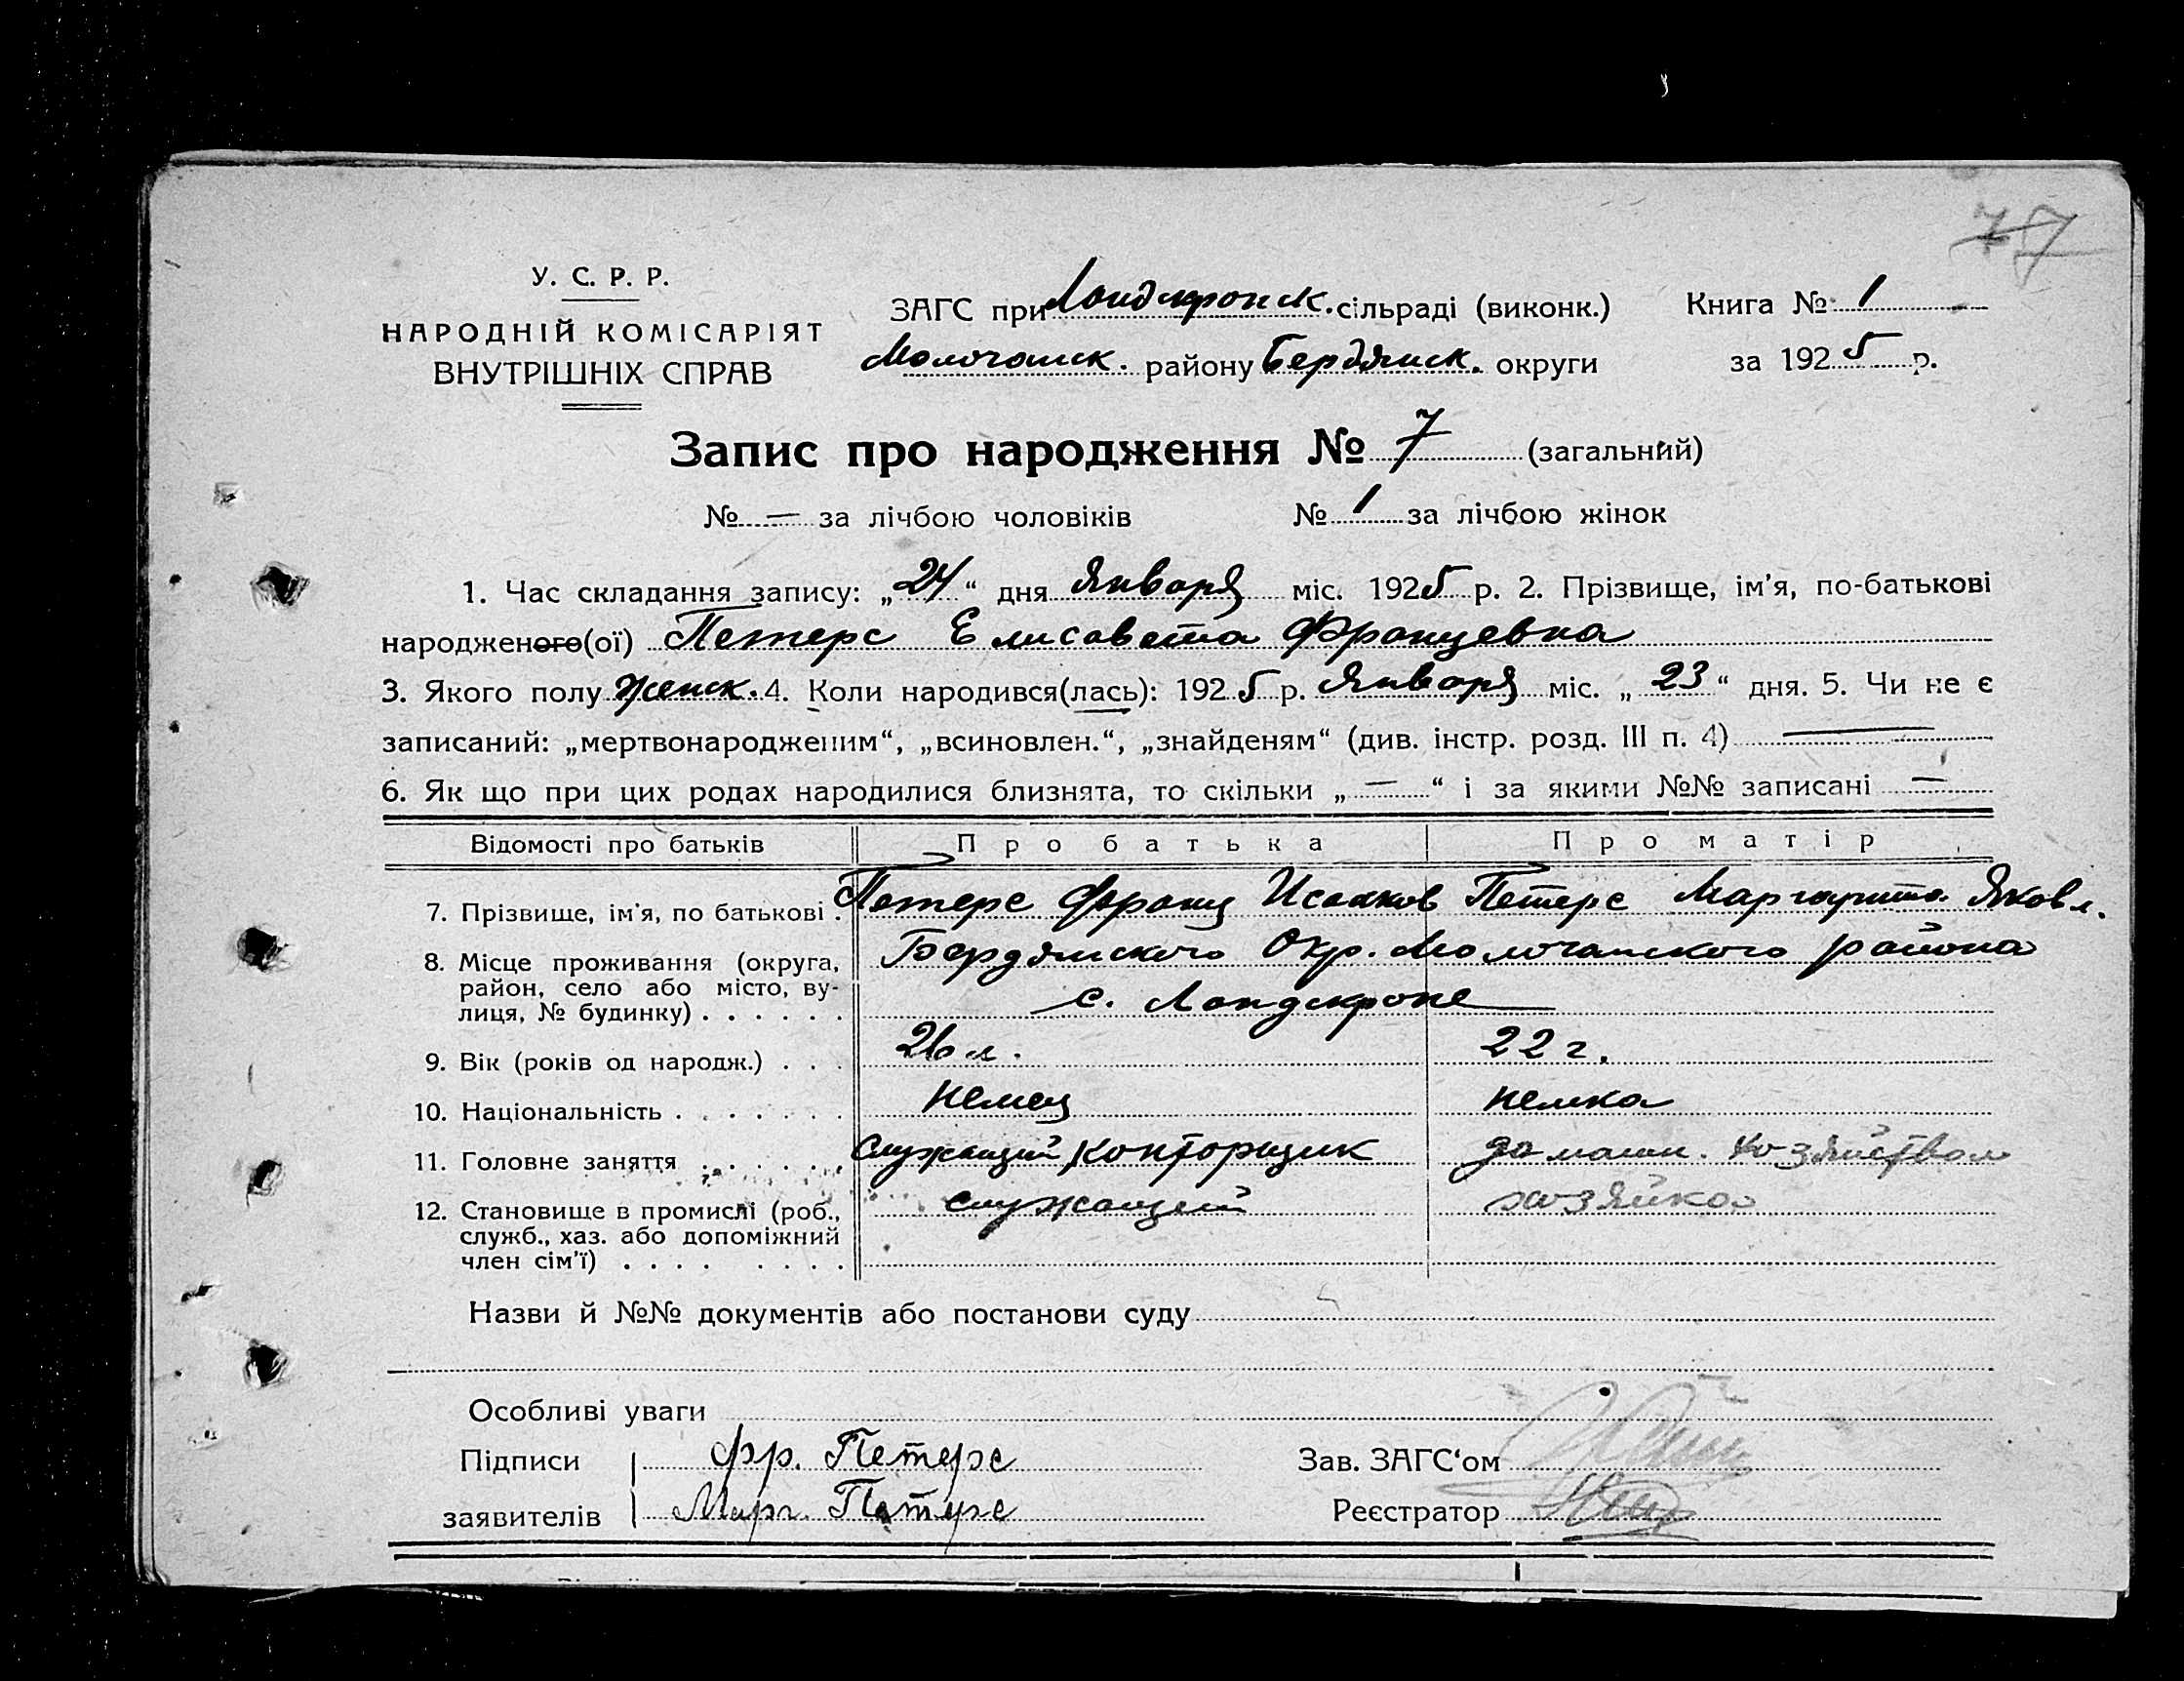 77
У. С. Р. Р.
НАРОДНІЙ КОМІСАРІЯТ
ВНУТРІШНІХ СПРАВ
ЗАГС при Ландскронск. сільраді (виконк.) Книга № 1
Молочанск. району Бердянск. округи за 1925 р.
Запис про народження № 7 (загальний)
№ — за лічбою чоловіків № 1 за лічбою жінок
1. Час складання запису: „24“ дня Января міс. 1925 р. 2. Прізвище, ім'я, по-батькові
народженого(ої) Петерс Елисавета Францевна
3. Якого полу женск. 4. Коли народився(лась): 1925 р. Января міс. „23“ дня. 5. Чи не є
записаний: „мертвонародженим“, „всиновлен.“, „знайденям“ (див. інстр. розд. III п. 4) —
6. Як що при цих родах народилися близнята, то скільки „—“ і за якими №№ записані —
Відомості про батьків Про батька Про матір
7. Прізвище, ім'я, по батькові . Петерс Франц Исааков Петерс Маргарита Яковл.
8. Місце проживання (округа, Бердянского Окр. Молочанского района
район, село або місто, ву-
лиця, № будинку) . . . . . . с. Ландскроне
9. Вік (років од народж.) . . . 26 л. 22 г.
10. Національність . . . . . . . немец немка
11. Головне заняття . . . . . . служащий, конторщик домашн. хозяйством
12. Становище в промислі (роб., служащий хозяйка
служб., хаз. або допоміжний
член сім'ї) . . . . . . . .
Назви й №№ документів або постанови суду
Особливі уваги
Підписи фр. Петерс Зав. ЗАГС'ом
заявителів Марг. Петерс Реєстратор